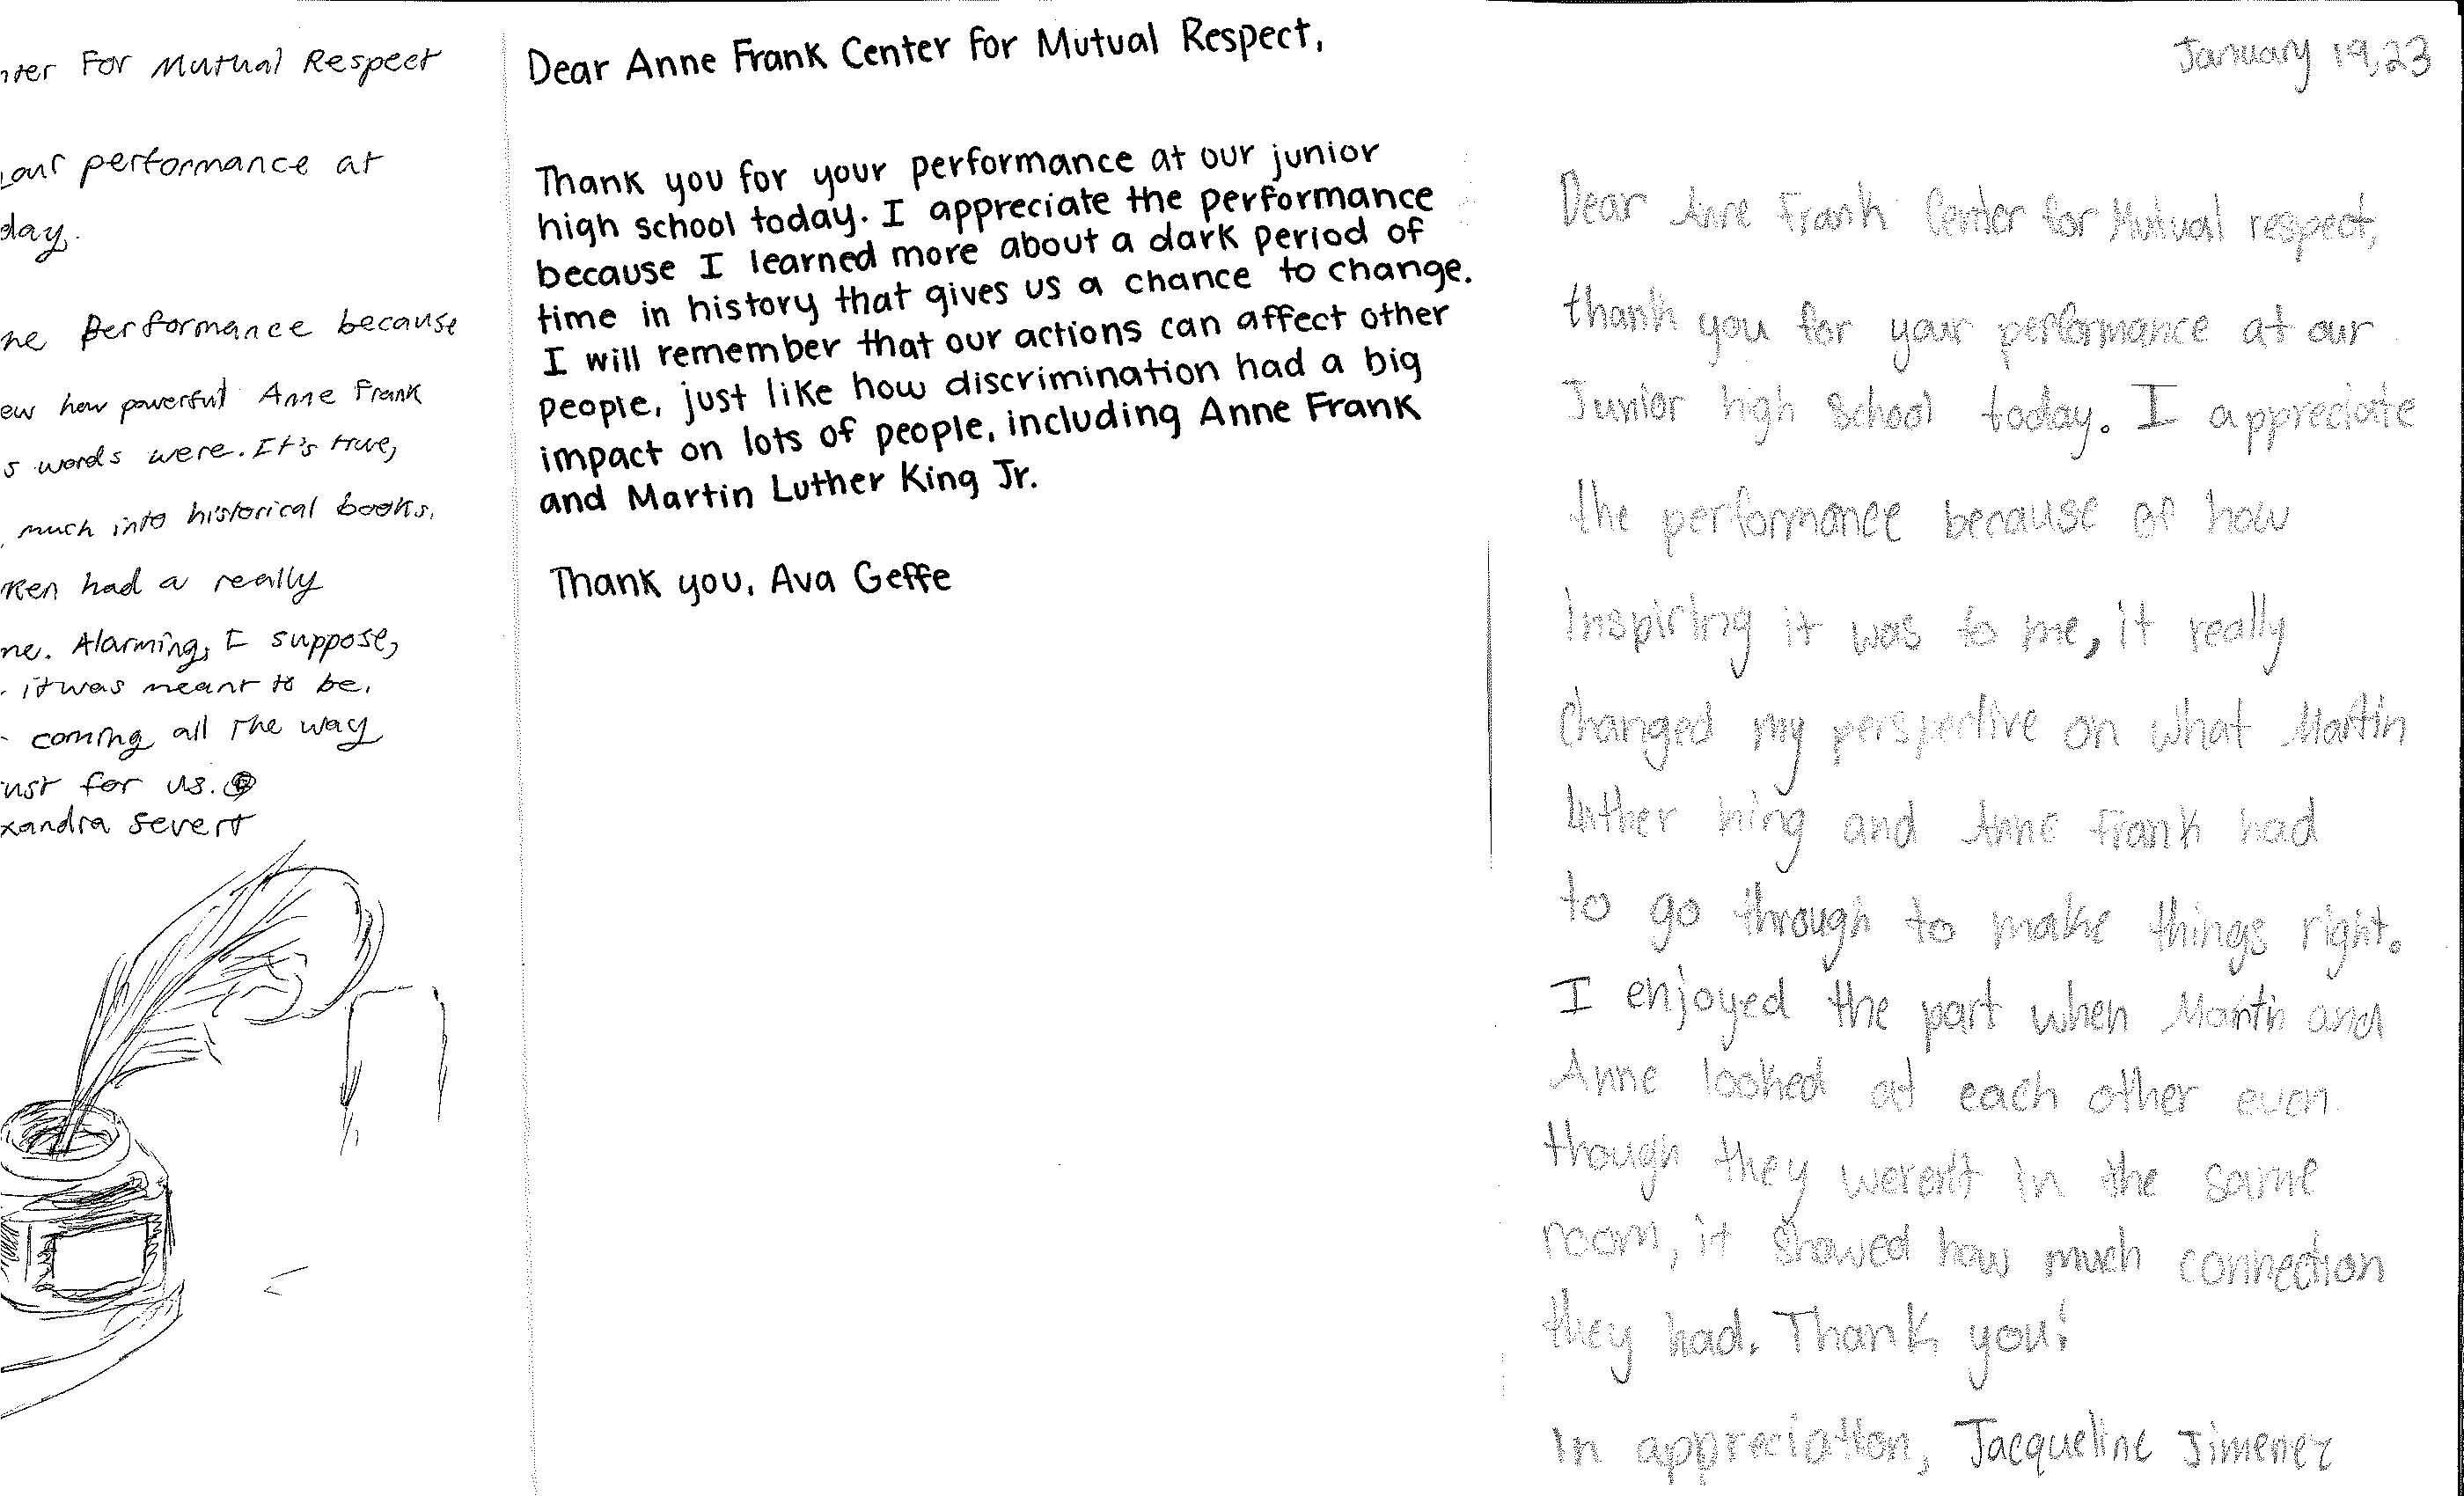 For Mutual Respect
performance at
day.
Performance because
how powerful Anne Frank
words were. It's true,
much into historical books.
had a really
Alarming, I suppose,
it was meant to be.
coming all the way
for us.
severt
Dear Anne Frank Center for Mutual Respect,
Thank you for your performance at our junior
high school today. I appreciate the performance
because I learned more about a dark period of
time in history that gives us a chance to change.
I will remember that our actions can affect other
people, just like how discrimination had a big
impact on lots of people, including Anne Frank
and Martin Luther King Jr.
Thank you, Ava Geffe
January 19,23
Dear Anne Frank Center for Mutual respect,
thank you for your performance at our
Junior high school today. I appreciate
the performance because of how
Inspiring it was to me, it really
changed my perspective on what Martin
luther king and Anne Frank had
to go through to make things right.
I enjoyed the part when Martin and
Anne looked at each other even
though they weren't in the same
room, it showed how much connection
they had. Thank you!
In appreciation, Jacqueline Jimenez